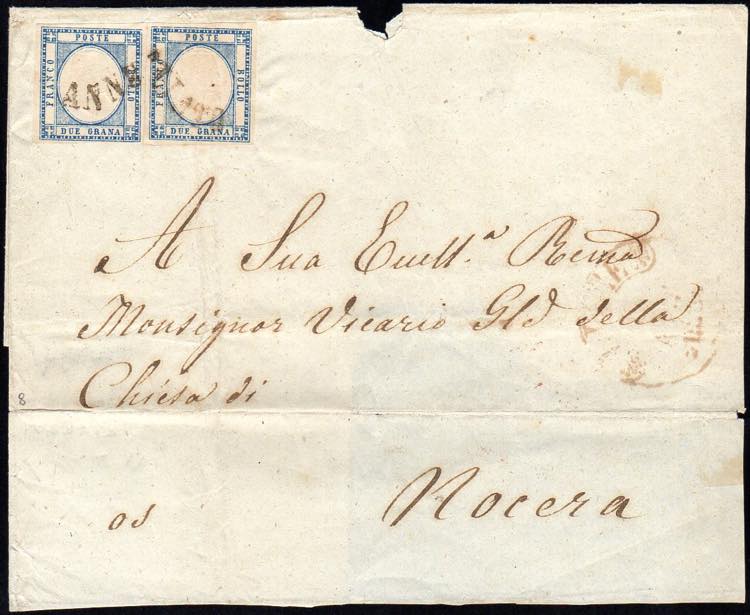 POSTE
FRANCO
BOLLO
DUE GRANA
POSTE
FRANCO
BOLLO
DUE GRANA
ANNUL
A Sua Ecell.a Rēma
Monsignor Vicario Gl̄d della
Chiesa di
8
os
Nocera